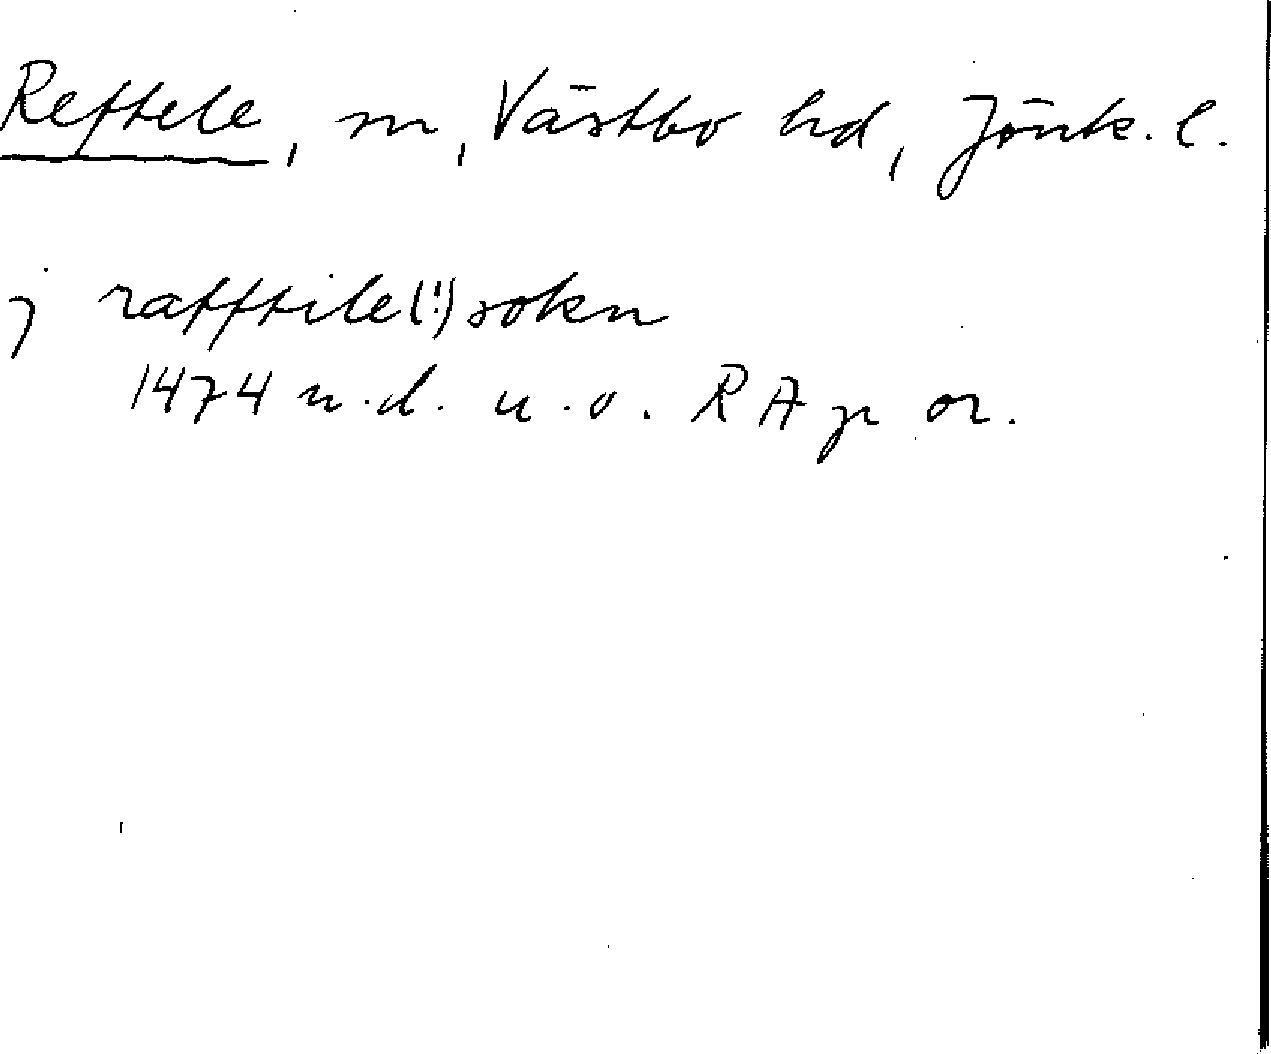 Reftele, sn, Västbo hd, Jönk. l.
j rafftile(!) sokn
1474 u.d. u.o. RAp or.